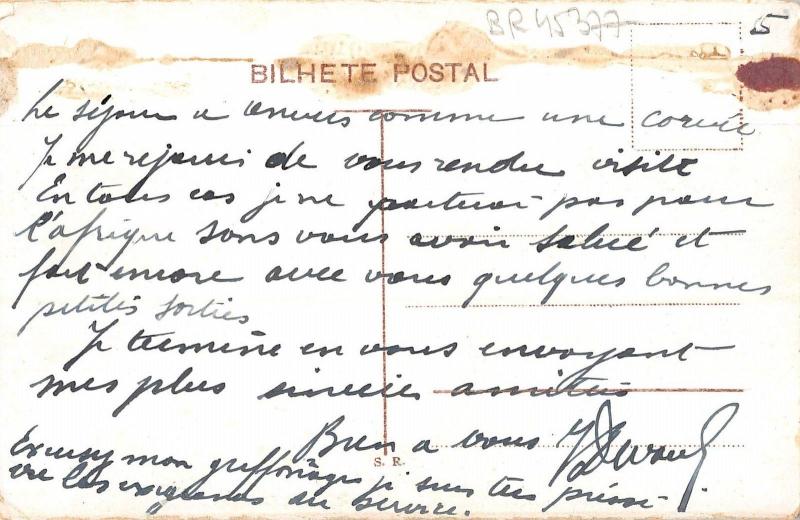 BR 45377
5
BILHETE POSTAL
Le séjour a anvers comme une corvée
Je me rejouis de vous rendre visite
En tous cas je ne partirai pas pour
l'afrique sans vous avoir salué et
fait encore avec vous quelques bonnes
petites sorties
Je termine en vous envoyant
mes plus sincères amitiés
Bien a vous
S. R.
Excusez mon griffonage, je suis très pressé
vu les exigences du service.